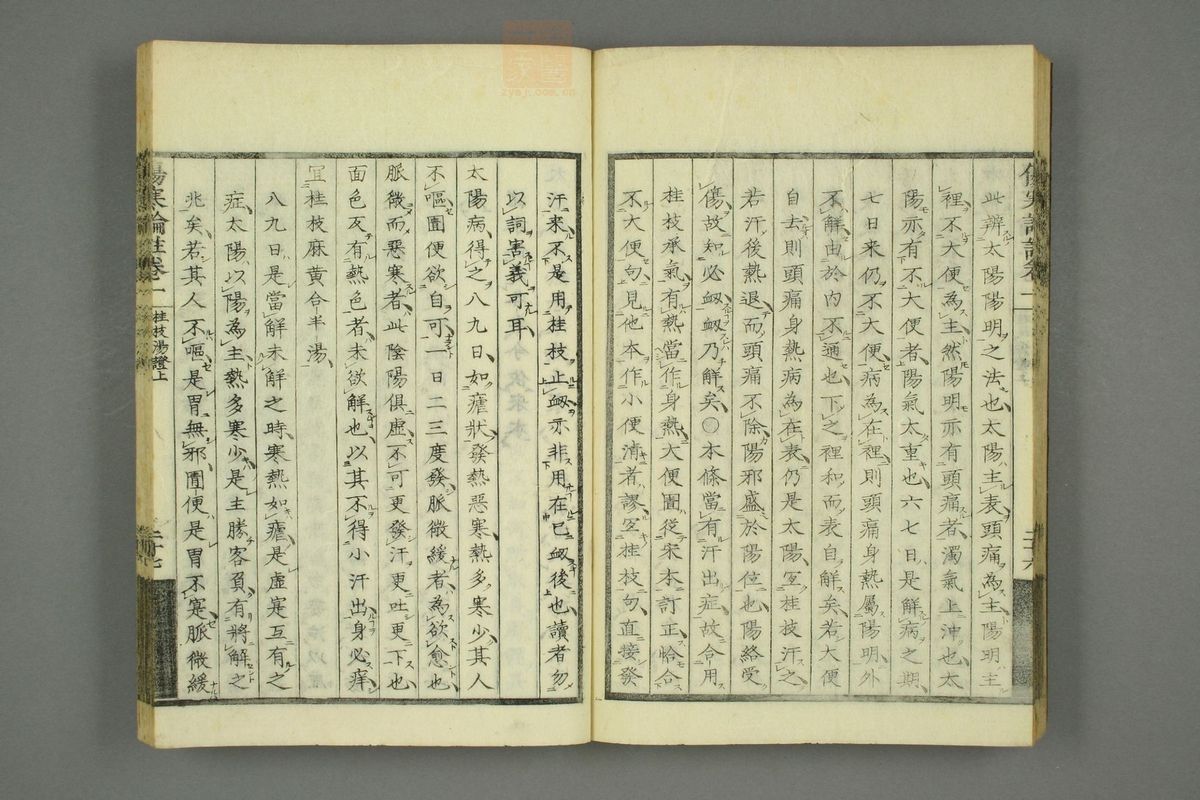 此辨太陽陽明之法也太陽主表頭痛為主陽明主
裡不大便為主然陽明亦有頭痛者濁氣上冲也太
陽亦有不大便者陽氣太重也六七日是解病之期
七日来仍不大便病為在裡則頭痛身熱屬陽明外
不解由於内不通也下之裡和而表自解矣若大便
自去則頭痛身熱病為在表仍是太陽宐桂枝汗之
若汗後熱退而頭痛不除陽邪盛於陽位也陽絡受
傷故知必衂衂乃解矣○本條當有汗出症故合用
桂枝承氣有熱當作身熱大便圊從宋本訂正恰合
不大便句見他本作小便清者謬宐桂枝句直接發
汗来不是用桂枝止衂亦非用在已衂後也讀者勿
以詞害義可耳
太陽病得之八九日如瘧狀發熱惡寒熱多寒少其人
不嘔圊便欲自可一日二三度發脈微緩者為欲愈也
脈微而惡寒者此陰陽俱虛不可更發汗更吐更下也
面色反有熱色者未欲解也以其不得小汗出身必痒
宜桂枝麻黄合半湯
八九日是當解未解之時寒熱如瘧是虛寔互有之
症太陽以陽為主熱多寒少是主勝客負有將解之
兆矣若其人不嘔是胃無邪圊便是胃不寔脈微緩
傷寒論註卷一
桂枝湯證上
二十七